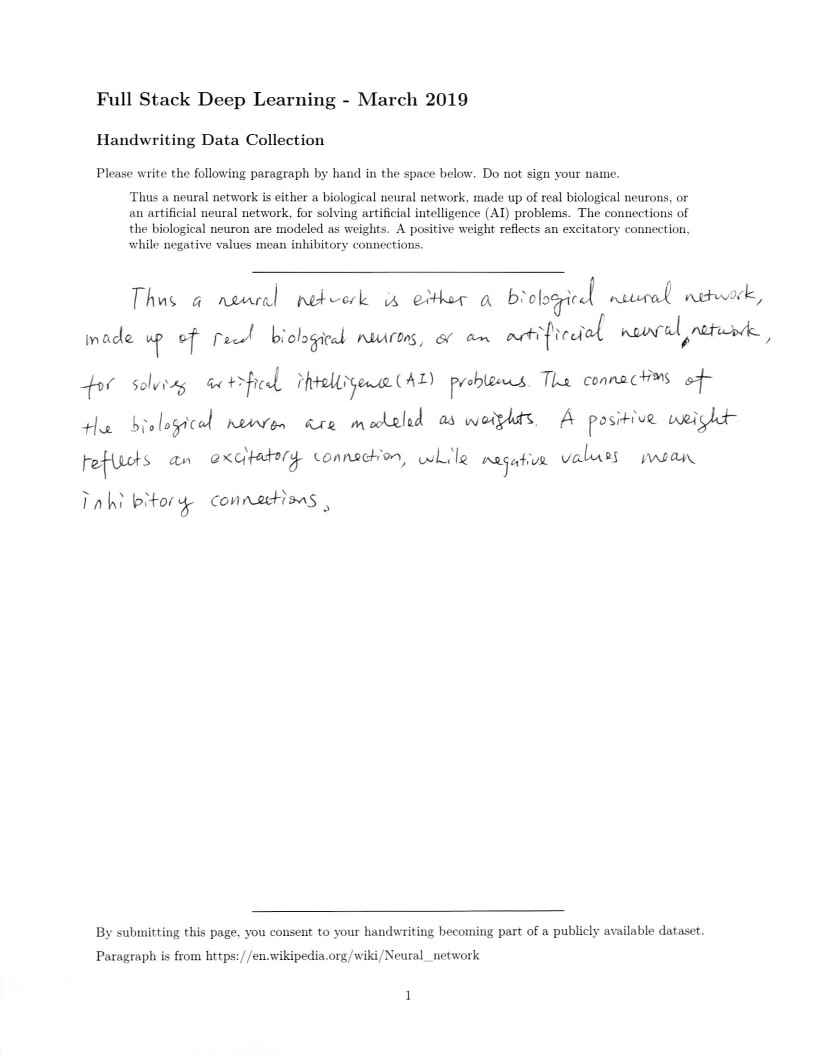 Full Stack Deep Learning - March 2019
Handwriting Data Collection
Please write the following paragraph by hand in the space below. Do not sign your name.
Thus a neural network is either a biological neural network, made up of real biological neurons, or
an artificial neural network, for solving artificial intelligence (AI) problems. The connections of
the biological neuron are modeled as weights. A positive weight reflects an excitatory connection,
while negative values mean inhibitory connections.
Thus a neural network is either a biological neural network,
made up of real biological neurons, or an artificcial neural, network,
for solving artifical intelligence (AI) problems. The connections of
the biological neuron are modeled as weights. A positive weight
reflects an excitatory connection, while negative values mean
inhibitory connections.
By submitting this page, you consent to your handwriting becoming part of a publicly available dataset.
Paragraph is from https://en.wikipedia.org/wiki/Neural_network
1